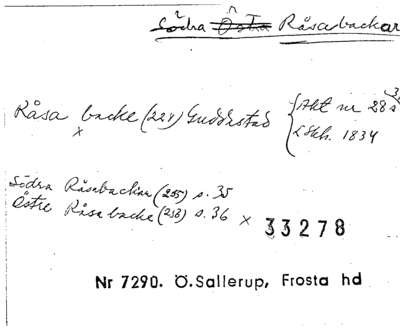 Södra Östra Råsabackar
Råsa backe (224) Guddastad { Akt nr 28
x { L Skh. 1834
Södra Råsabackar (255) s. 35
Östre Råsabacke (258) s. 36 x 33278
Nr 7290. Ö.Sallerup, Frosta hd